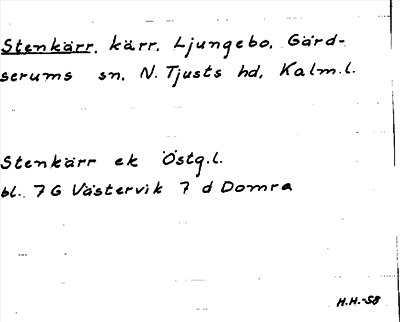 Stenkärr, kärr, Ljungebo, Gärd-
serums sn, N. Tjusts hd, Kalm.l.
Stenkärr ek Östg.l.
bl. 7 G Västervik 7 d Domra
H.H.-58